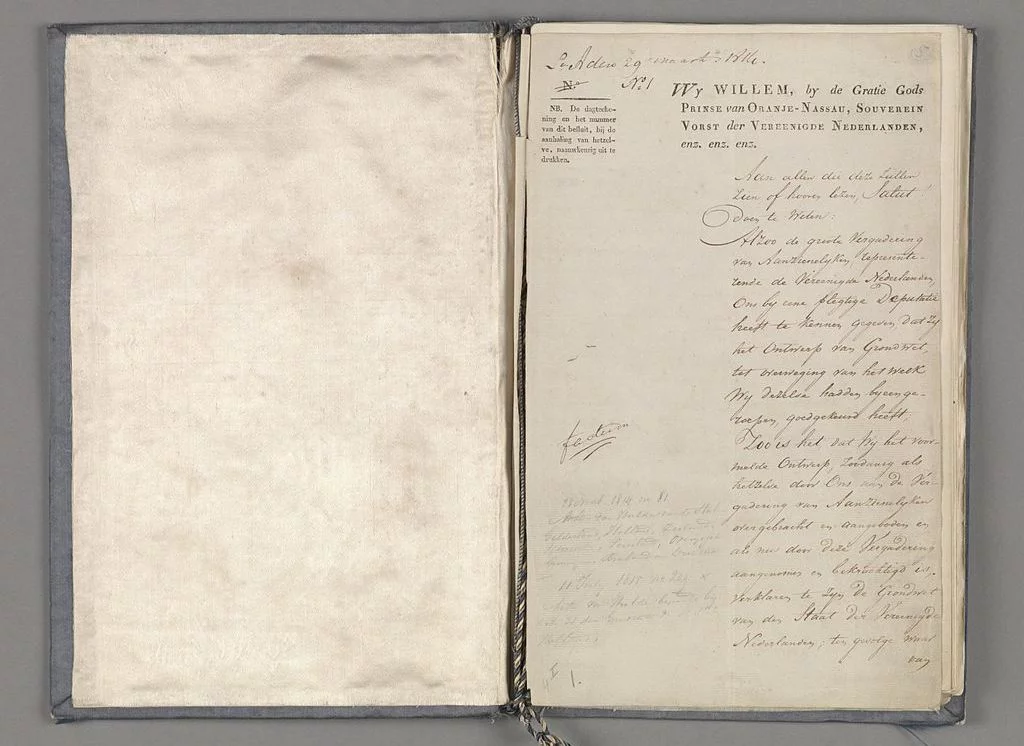 29 maart 1814.
N.º
Nº 1
NB. De dagteeke-
ning en het nummer
van dit besluit, bij de
aanhaling van hetzel-
ve, naauwkeurig uit te
drukken.
Wy WILLEM, by de Gratie Gods
Prinse van Oranje-Nassau, Souverein
Vorst der Vereenigde Nederlanden,
enz. enz. enz.
Aan allen die deze zullen
zien of hooren lezen, Salut!
doen te Weten:
Alzoo de groote Vergadering
van Aanzienelyken, represente-
rende de Vereenigde Nederlanden,
Ons by eene plegtige Deputatie
heeft te kennen gegeven, dat zy
het Ontwerp van Grondwet,
tot overweging van het welk
Wy dezelve hadden byeenge-
roepen, goedgekeurd heeft;
Zoo is het, dat Wy het voor-
melde Ontwerp, zoodanig als
hetzelve door Ons aan de Ver-
gadering van Aanzienelyken
overgebragt en aangeboden en
als nu door deze Vergadering
aangenomen en bekrachtigd is,
verklaren te zyn de Grondwet
van den Staat der Vereenigde
Nederlanden; ten gevolge waar
van
factum
1.